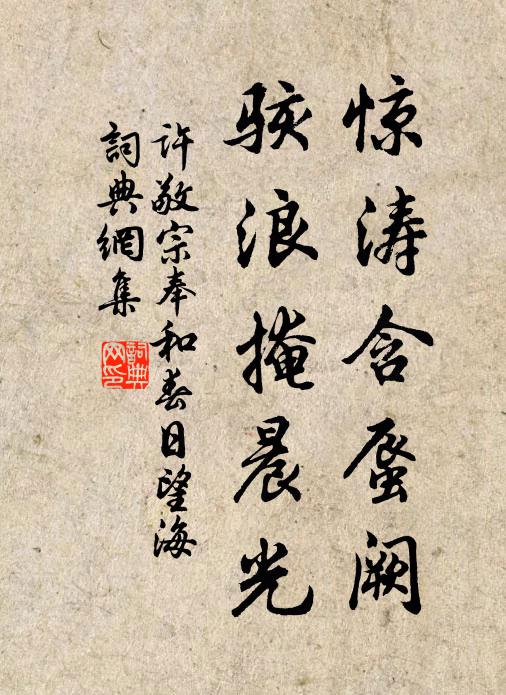 惊涛含蜃阙
骇浪掩晨光
许敬宗奉和春日望海
詞典網集
詞典网印